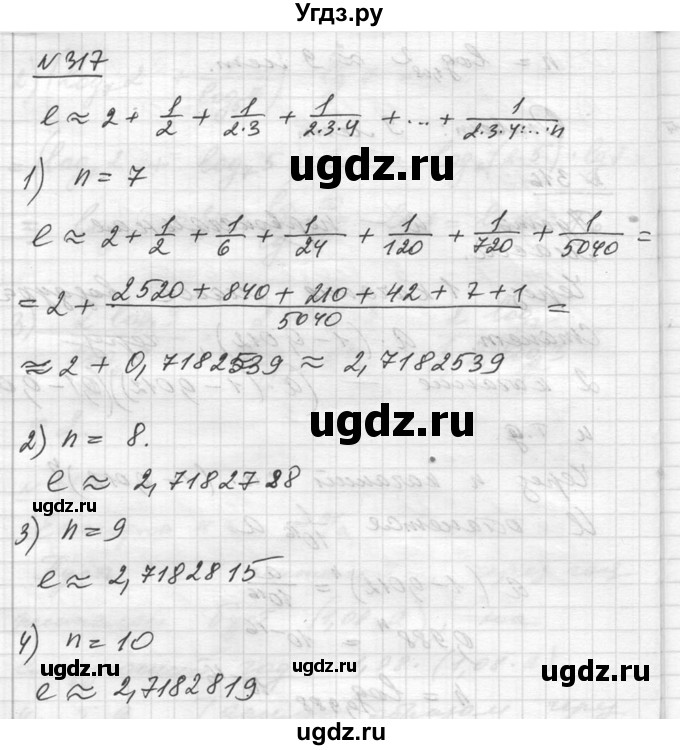 Угдз.ру
N 317
e ≈ 2 + 1/2 + 1/(2·3) + 1/(2·3·4) + ... + 1/(2·3·4·...·n)
ugdz.ru
1) n = 7
e ≈ 2 + 1/2 + 1/6 + 1/24 + 1/120 + 1/720 + 1/5040 =
= 2 + (2520 + 840 + 210 + 42 + 7 + 1)/5040 =
≈ 2 + 0,7182539 ≈ 2,7182539
ugdz.ru
2) n = 8.
e ≈ 2,7182728
ugdz.ru
ugdz.ru
3) n = 9
e ≈ 2,7182815
4) n = 10
ugdz.ru
ugdz.ru
ugdz.ru
e ≈ 2,7182819
ugdz.ru
ugdz.ru